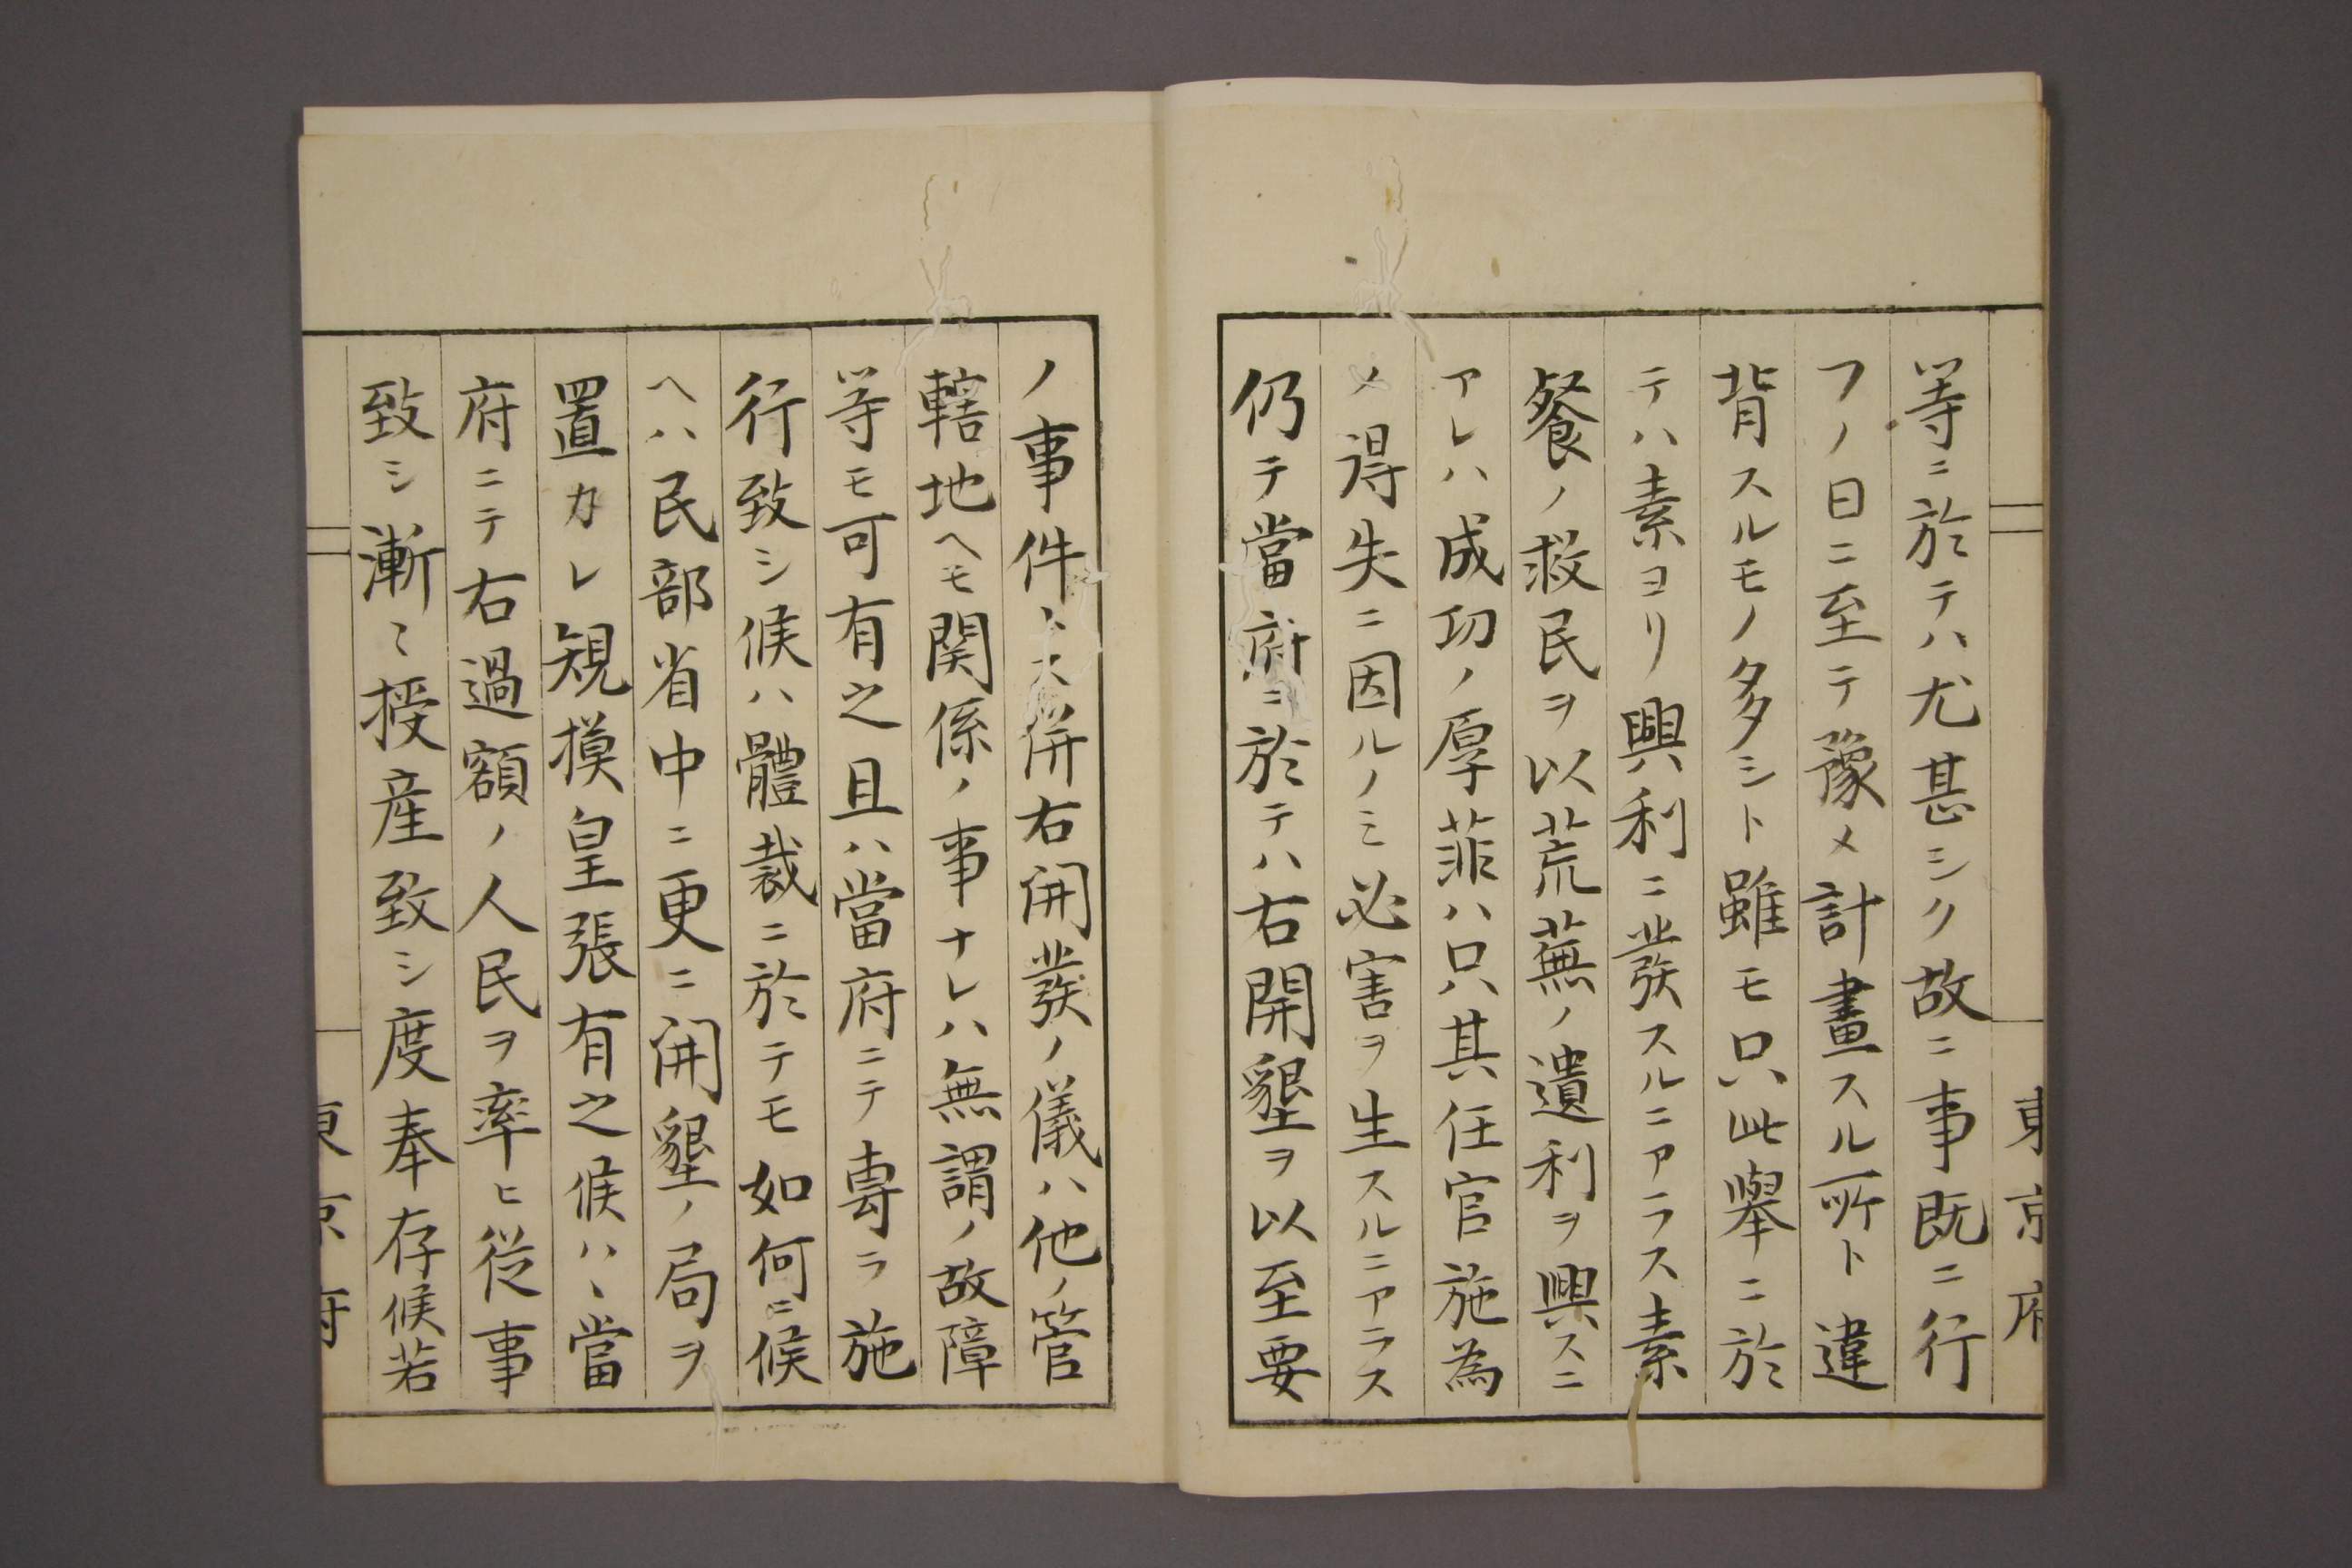 東京府
等ニ於テハ尤甚シク故ニ事既ニ行
フノ日ニ至テ豫メ計畫スル所ト違
背スルモノ多シト雖モ只此舉ニ於
テハ素ヨリ興利ニ發スルニアラス素
餐ノ救民ヲ以荒蕪ノ遺利ヲ興スニ
アレハ成功ノ厚菲ハ只其任官施為
ノ得失ニ因ルノミ必害ヲ生スルニアラス
仍テ當府ニ於テハ右開墾ヲ以至要
ノ事件ト大併右開發ノ儀ハ他ノ管
轄地ヘモ関係ノ事ナレハ無謂ノ故障
等モ可有之且ハ當府ニテ專ラ施
行致シ候ハ體裁ニ於テモ如何ニ候
ヘハ民部省中ニ更ニ開墾ノ局ヲ
置カレ規摸皇張有之候ハヽ當
府ニテ右過額ノ人民ヲ率ヒ從事
致シ漸〻授産致シ度奉存候若
東京府